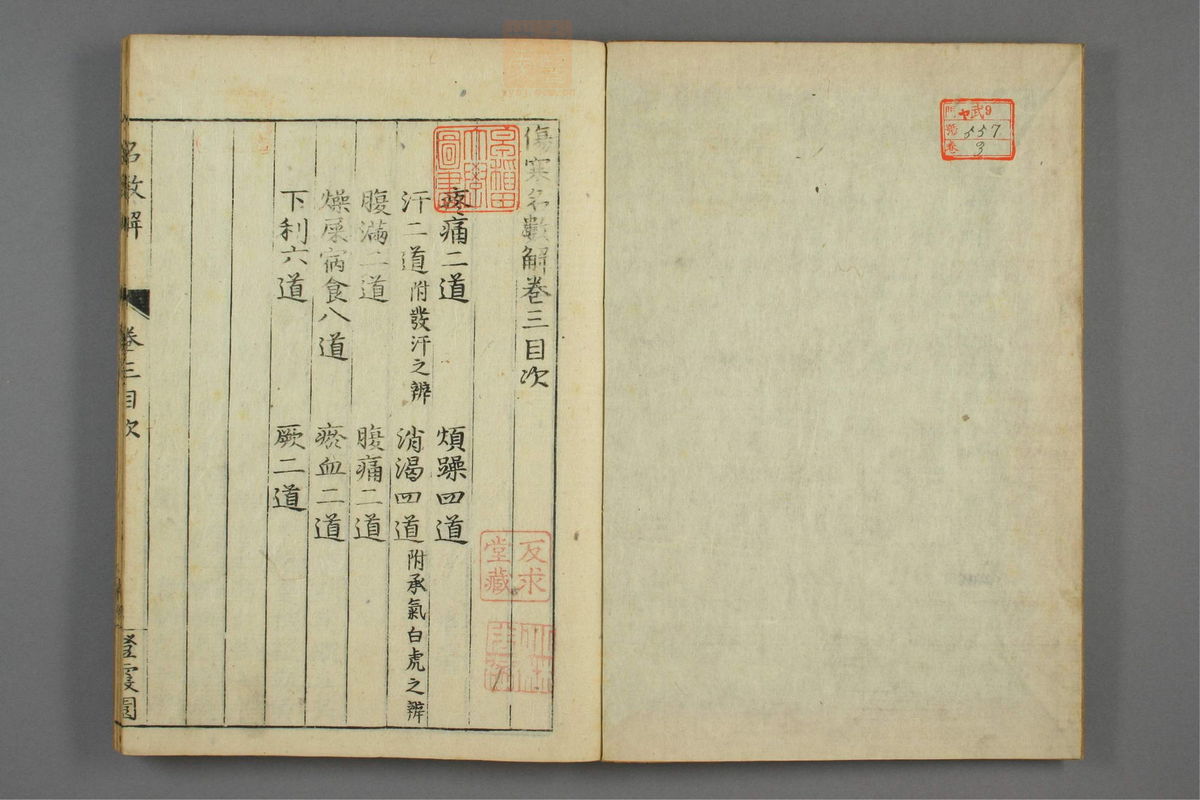 門 ヤ武9
號 557
卷 3
傷寒名數解卷三目次
疼痛二道 煩躁四道
汗二道附發汗之辨 消渴四道附承氣白虎之辨
腹滿二道 腹痛二道
燥屎宿食八道 瘀血二道
下利六道 厥二道
名數解 卷三目次
反求
堂藏
圖書